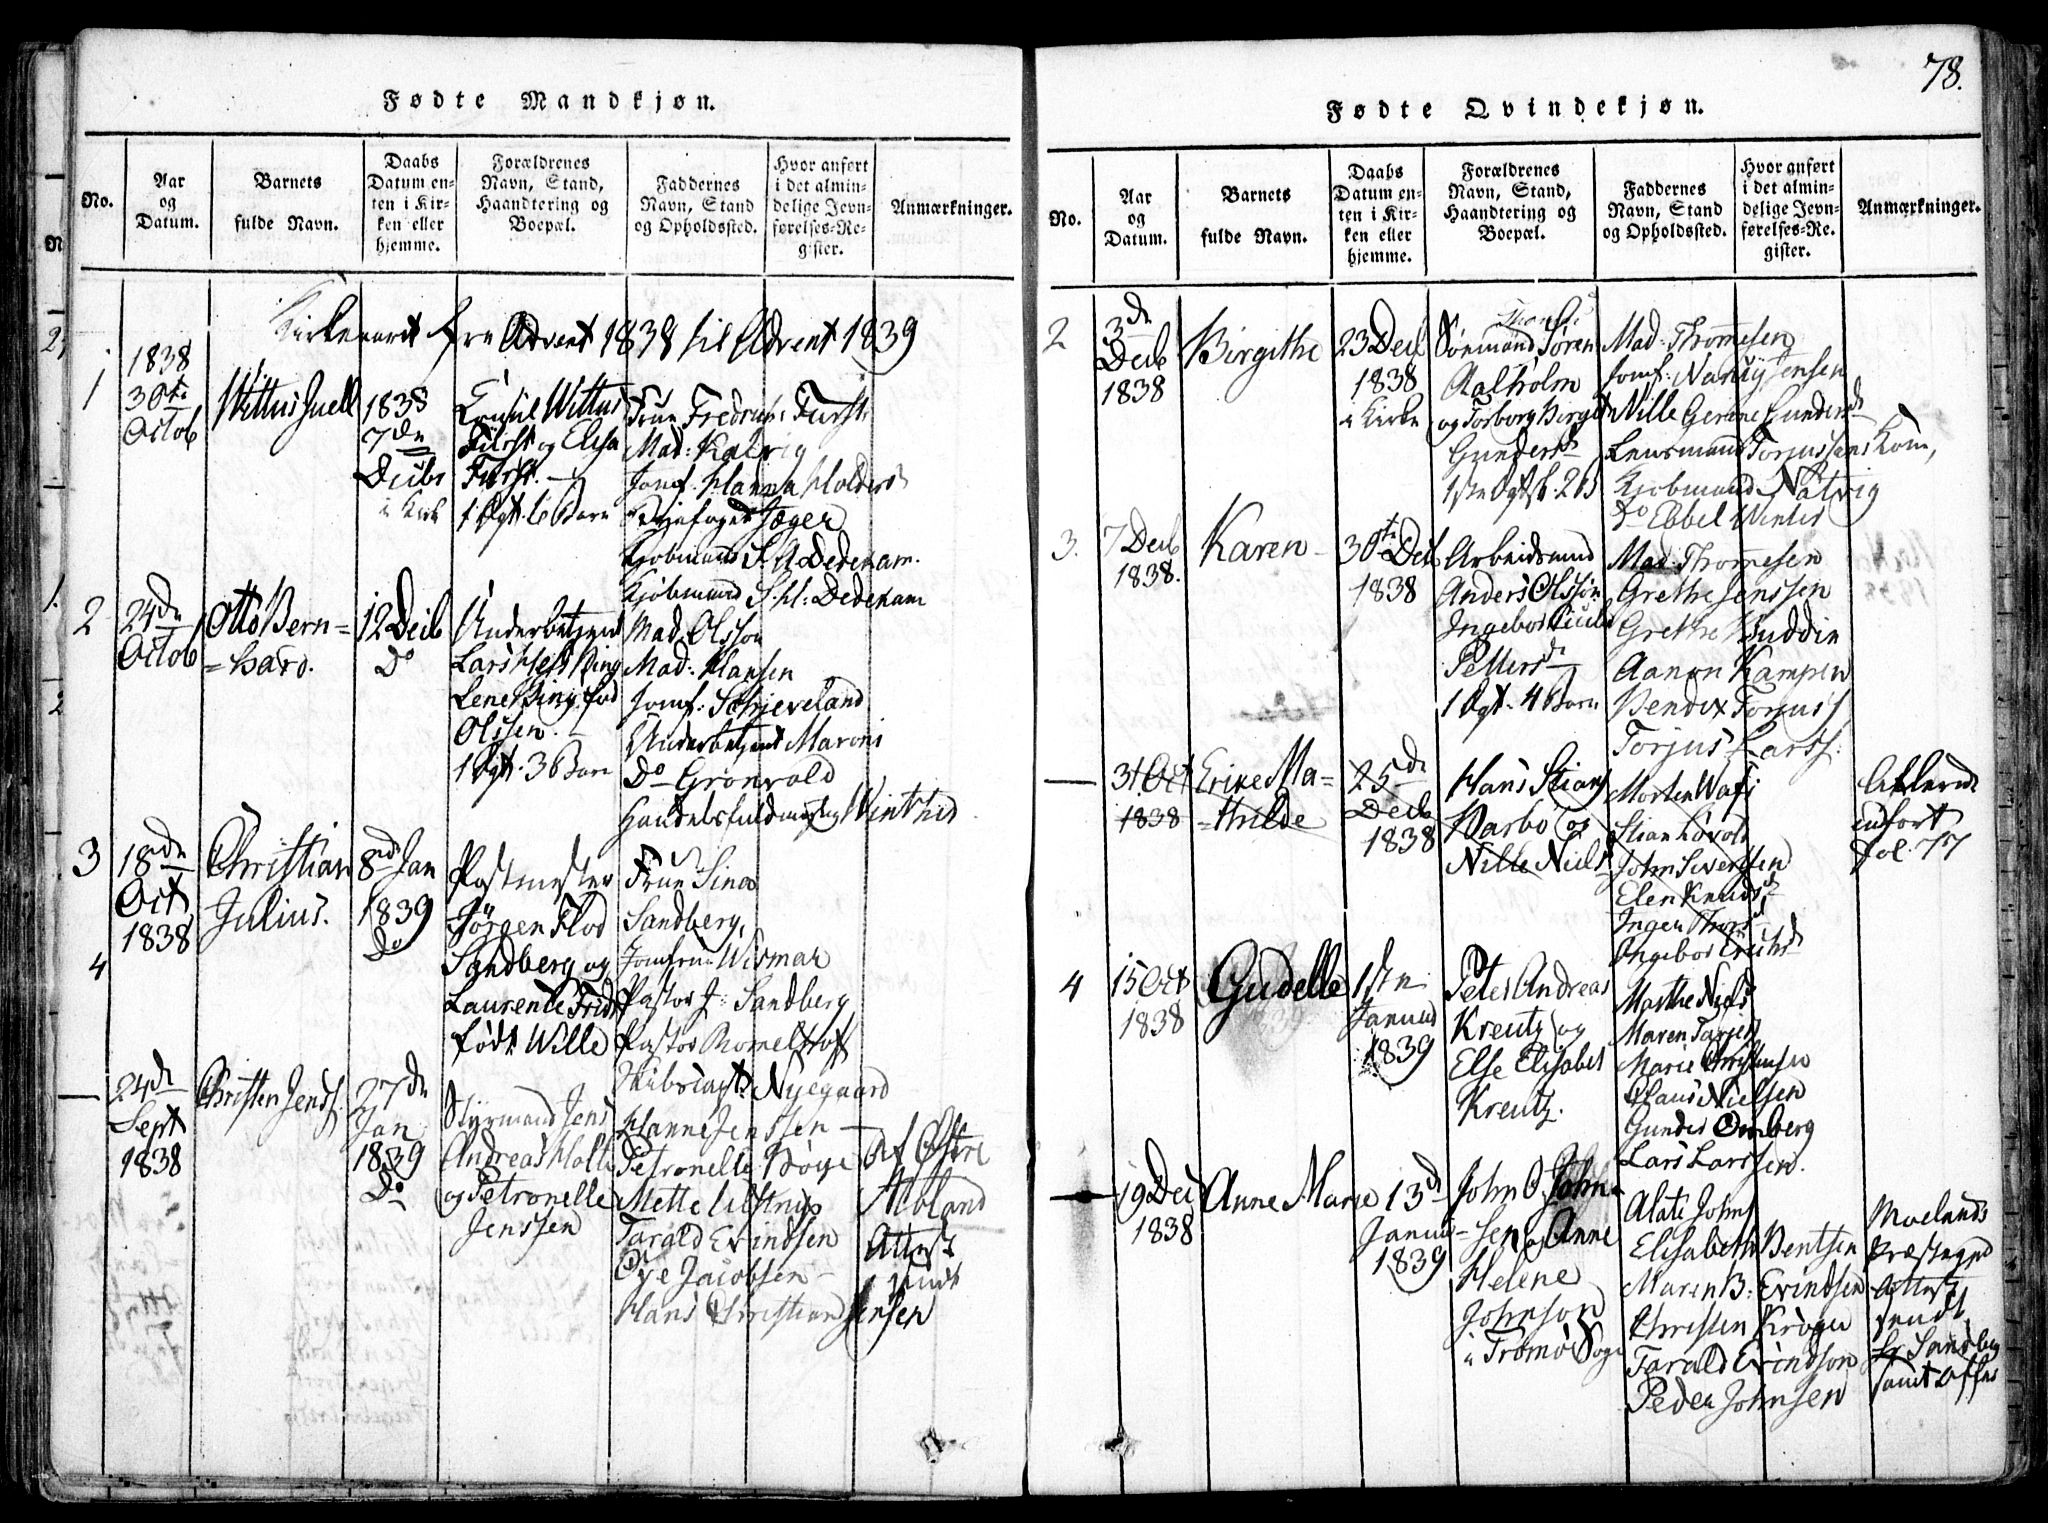 Fødte Mandkjøn.
No.
Aar og Datum.
Barnets fulde Navn.
Daabs Datum enten i Kirken eller hjemme.
Forældrenes Navn, Stand, Haandtering og Boepæl.
Faddernes Navn, Stand og Opholdssted.
Hvor anført i det almindelige Jevnførelses-Register.
Anmærkninger.
Kirkeaaret fra Advent 1838 til Advent 1839
1
1838
30te
Octob
Wittus Juell
1838
7de
Decbr
i Kirk
Consul Wittus
Fürst og Elisa
Fürst.
1 Ægt. 6 Barn
Frue Fredr. Fürst
Mad: Kalvig
Jomf. Hanna Holders
Jæger
Kjöbmand S. A Dedekam.
Kjöbmand S. H: Dedekam
2
24de
Octob
Otto Bern=
=hard.
12 Decb
Do
Underbetjent
Lars Hess Bing
Lene Bing, fød
Olssen.
1 Ægt. 3 Barn
Mad. Olsson
Mad: Hansen
Jomf: Schjeveland
Underbetjent Maroni
Do Grönvold
Handelsfuldmægtig Winther
3
18de
Oct
1838
Christian
Julius.
8de Jan
1839
Do
Postmester
Jörgen Flod
Sandberg og
Laurentze Fridr
født Wille
Frue Sina
Sandberg,
Jomfrue Wismar
Pastor J: Sandberg
Pastor Romeltvoft
Skibscapt: Nyegaard
4
24de
Sept
1838
Christen Jens.
27de
Jan
1839
Do
Styrmand Jens
Andreas Holte
og Petronelle
Jenssen
Hanne Jenssen
Petronelle Böye
Mette Ulstrup
Tarald Evindsen
Oye Jacobsen
Hans Christian Jensen
Af Østre
Moland
Attest
sendt
78.
Fødte Qvindekjøn.
No.
Aar og Datum.
Barnets fulde Navn.
Daabs Datum enten i Kirken eller hjemme.
Forældrenes Navn, Stand, Haandtering og Boepæl.
Faddernes Navn, Stand og Opholdssted.
Hvor anført i det almindelige Jevnførelses-Register.
Anmærkninger.
2
3de
Decb
1838
Birgithe
23 Decb
1838
i Kirke
Sömand Søren
Aalholm
og Torborg Birgit
Gundersd
1ste Ægtsk. 2 B
Mad: Thommesen
Jomf: Nancy Jensen
Nille Gerine Gundersd
Lensmand Torjussens Kone,
Kjöbmand Natvig
Do Ebbel Winter
3.
7 Decb
1838.
Karen
30te Decb
1838
Arbeidsmand
Anders Olsson
Ingebor
Pettersd
1 Ægt. 4 Barn
Mad Thommesen
Grethe Jenssen
Grethe Buddin
Aanon Kampen
Bendix Torjuss
Torjus Larss.
31 Oct
1838
Erike Ma=
=thilde
25de
Decb
1838
Hans Stians
Barbo og
Nille Niels
Morten Wafs
Stian Lövold
John Sivertsen
Elen Knuds
Inger Thors
Ingebor Erichs
Allerede
indfört
Fol. 77
4
15 Oct
1838
Gudelle
1ste
Januar
1839
Peter Andreas
Kreutz og
Else Elisabet
Kreutz.
Marthe Niels
Maren Tarjes
Marie Christensen
Claus Nielsen
Gunder Omberg
Lars Larssen.
19 Dec
1838
Anne Marie
13de
Januar
1839
John O. John=
=sen og Anne
Helene
Johnson
i Tromö Sogn
Alate Johns
Elisabeth Bentsen
Maren B: Evindsen
Christen Kröger
Tarald Evindson
Peder Johnsen
Moelands
Præstegjeld
Attest
sendt
Hr Sandberg
samt Offer